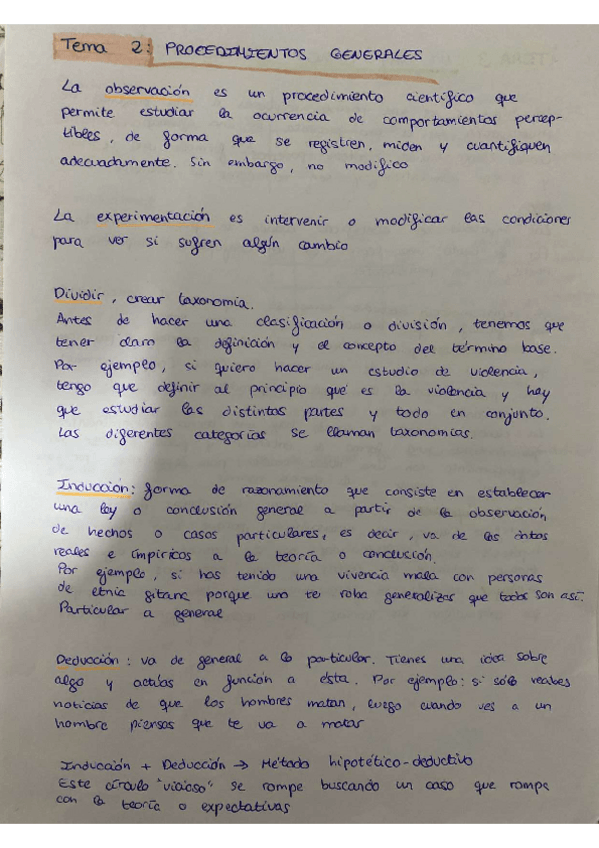 Tema 2: PROCEDIMIENTOS GENERALES
La observación es un procedimiento científico que
permite estudiar la ocurrencia de comportamientos percep-
tibles, de forma que se registren, miden y cuantifiquen
adecuadamente. Sin embargo, no modifico
La experimentación es intervenir o modificar las condiciones
para ver si sufren algún cambio
Dividir, crear taxonomía.
Antes de hacer una clasificación o división, tenemos que
tener claro la definición y el concepto del término base.
Por ejemplo, si quiero hacer un estudio de violencia,
tengo que definir al principio qué es la violencia y hay
que estudiar las distintas partes y todo en conjunto.
Las diferentes categorías se llaman taxonomías.
Inducción: forma de razonamiento que consiste en establecer
una ley o conclusión general a partir de la observación
de hechos o casos particulares, es decir, va de los datos
reales e empíricos a la teoría o conclusión.
Por ejemplo, si has tenido una vivencia mala con personas
de etnia gitana porque uno te roba generalizas que todos son así.
Particular a general
Deducción: va de general a lo particular. Tienes una idea sobre
algo y actúas en función a ésta. Por ejemplo: si sólo recibes
noticias de que los hombres matan, luego cuando ves a un
hombre piensas que te va a matar
Inducción + Deducción → Método hipotético-deductivo
Este círculo "vicioso" se rompe buscando un caso que rompa
con la teoría o expectativas